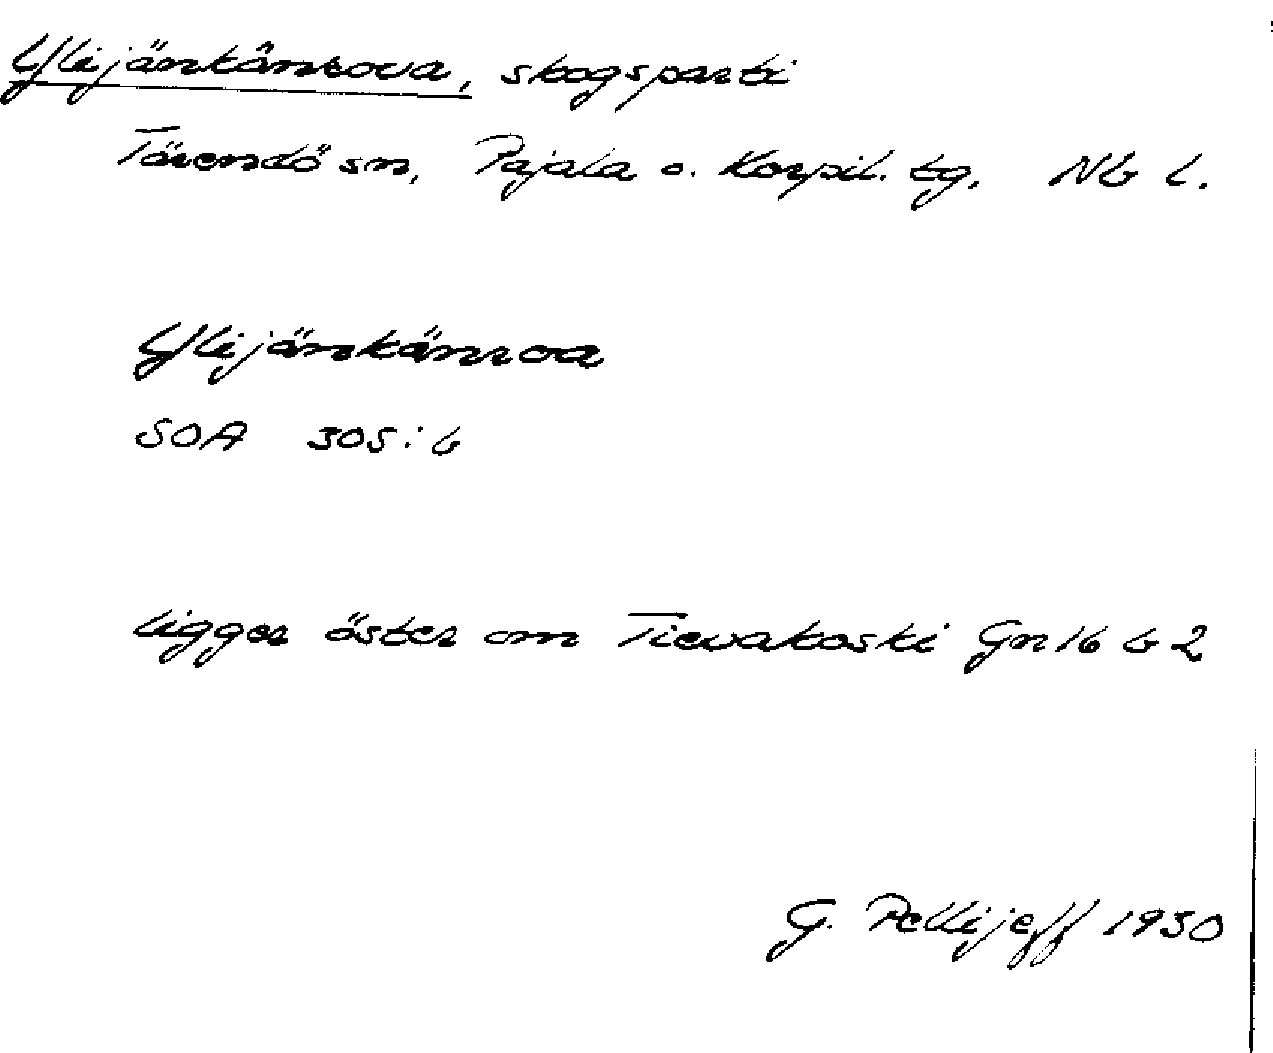 Ylijänkänrova, skogsparti
Tärendö sn, Pajala o. Korpil. tg. Nb l.
Ylijänkänroa
SOA 305:b
ligger öster om Tievakoski Gn16 b 2
G. Pellijeff 1930